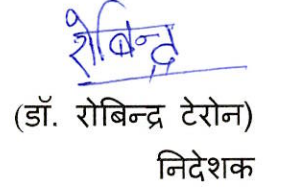 रोबिन्द्र
(डॉ. रोबिन्द्र टेरोन)
निदेशक